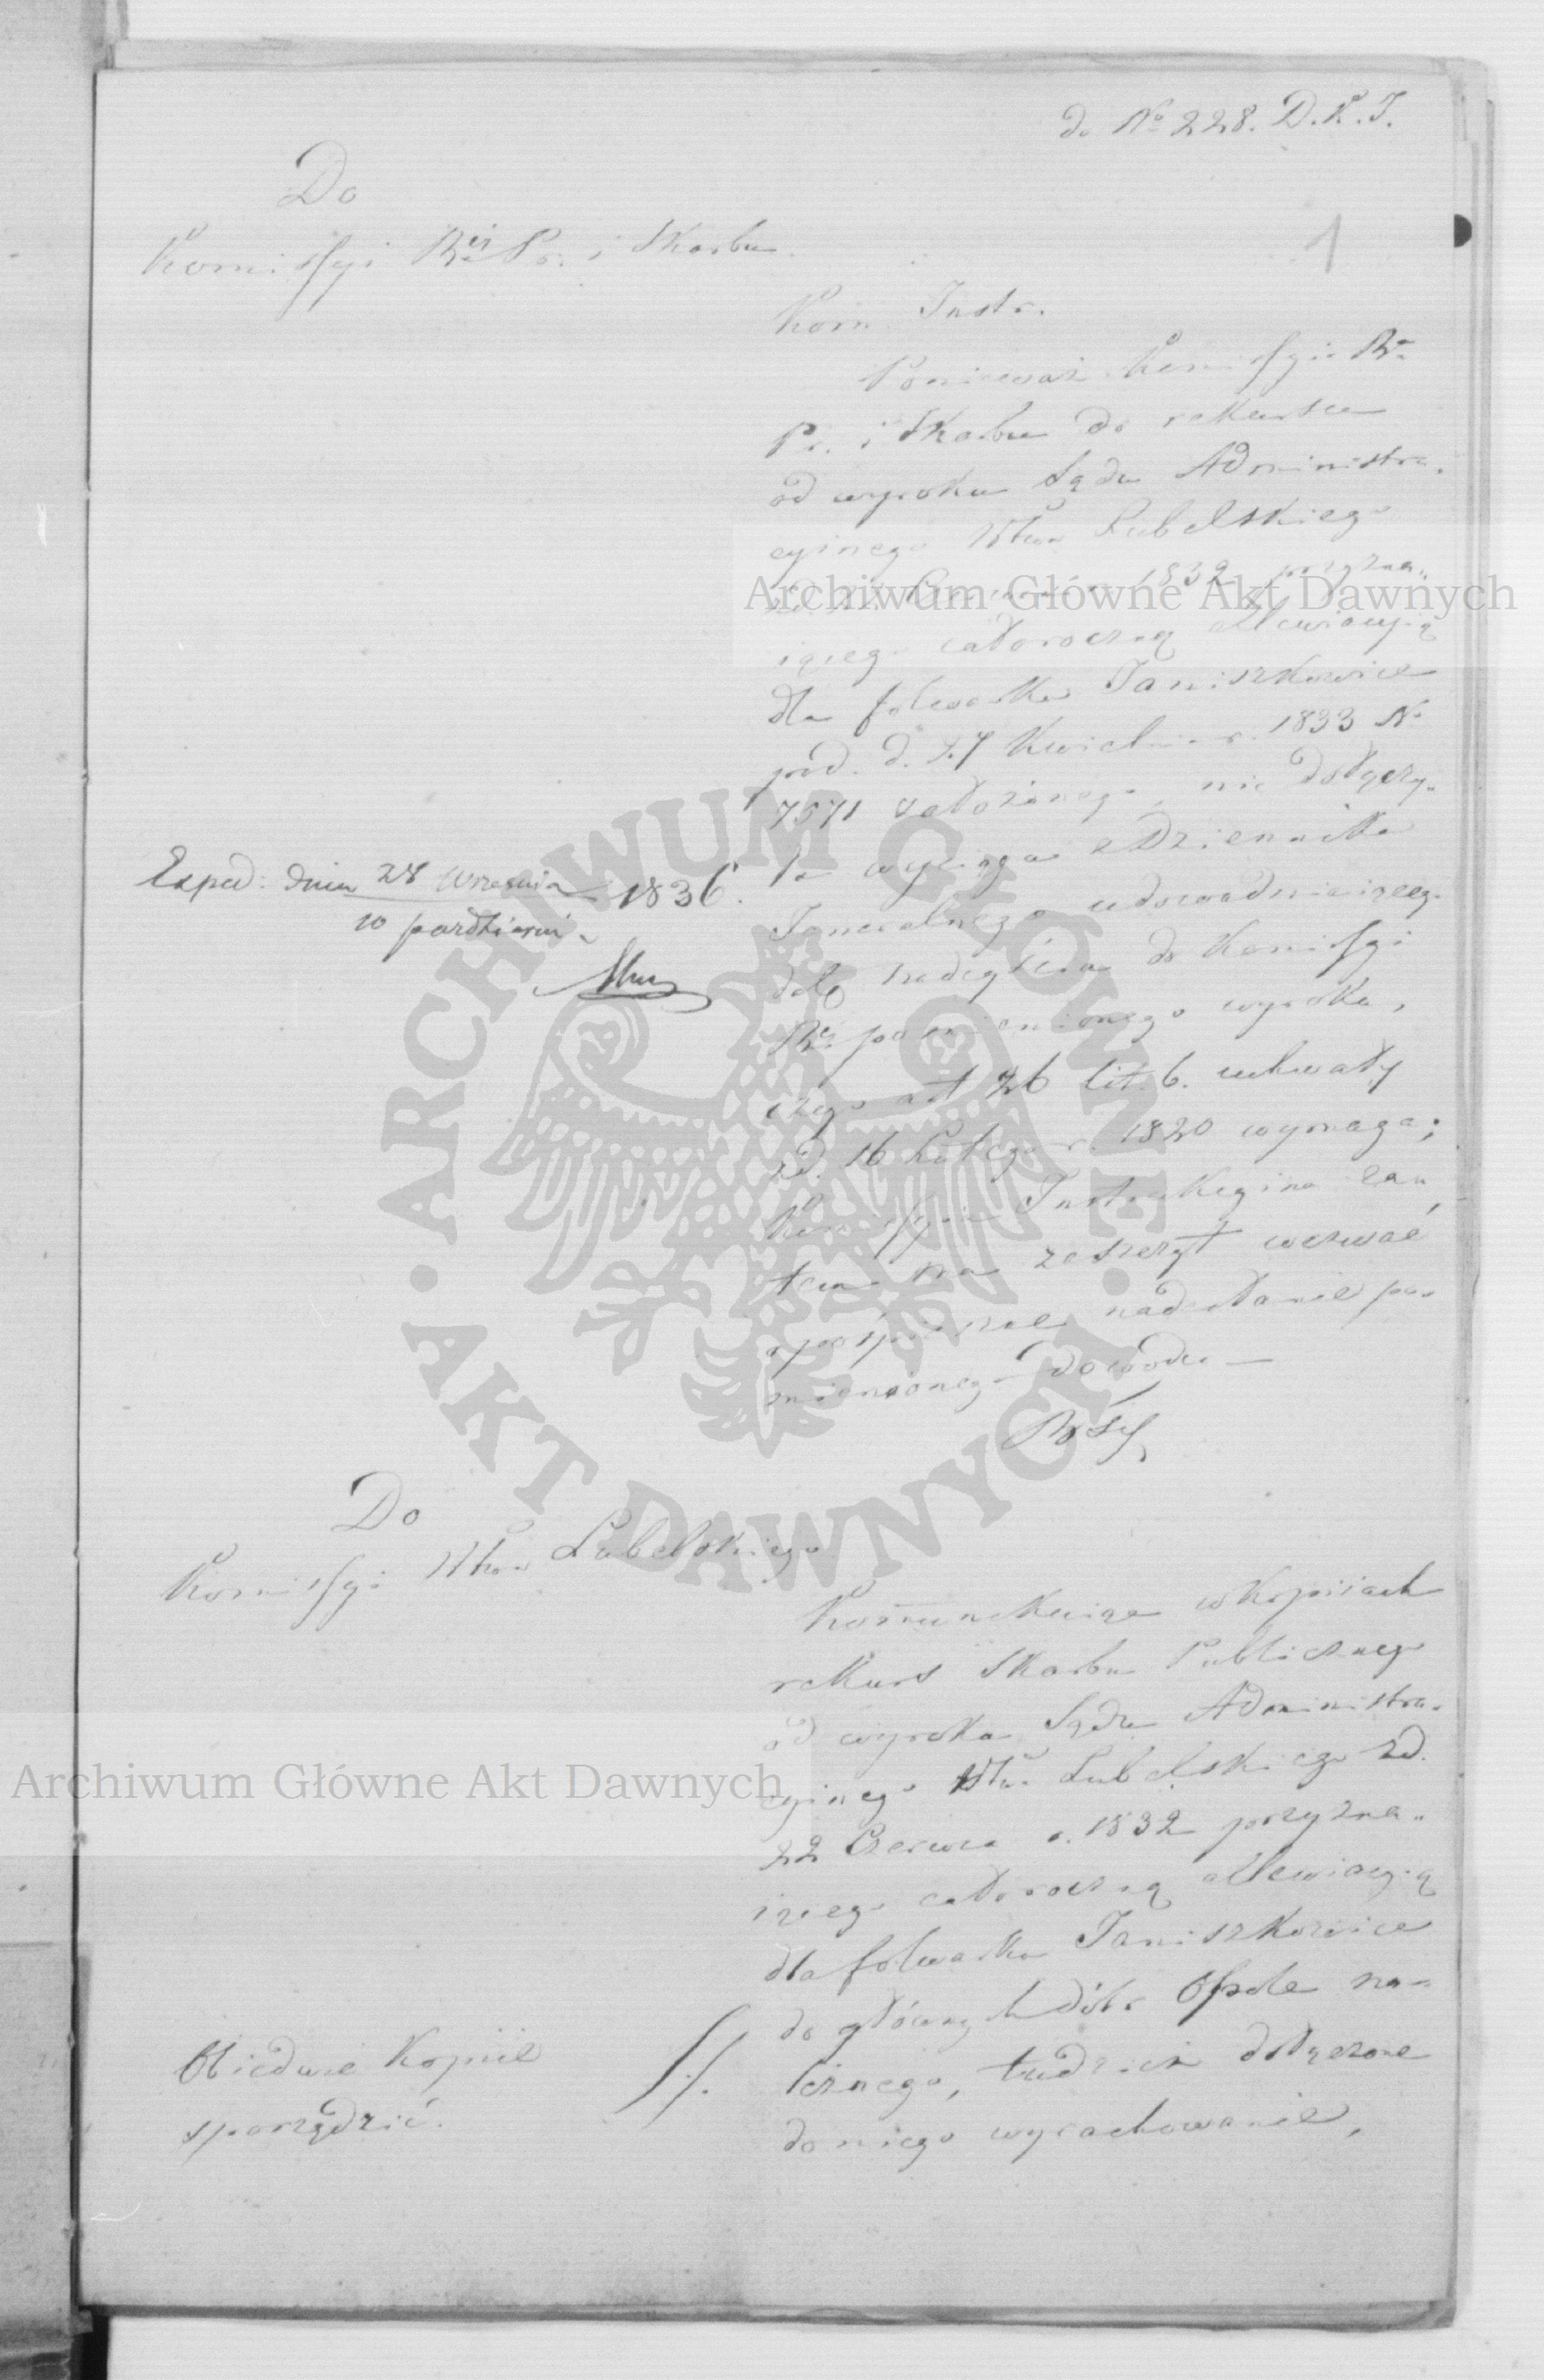 do No 228. D.K.I.
1
Do
Komissyi Rei Pr. i Skarbu.
Kom. Instr.
Ponieważ Komissyia Ra
Pr. i Skarbu do rekursu
od wyroku Sądu Administra-
cyinego Wtwa Lubelskiego
1832 przyzna-
iącego całoroczną allewiacyią
dla folwarku Janiszkowice
pod d. Kwietnia r. 1833 No
7571 założonego, nie dołączy-
ła wyciągu z Dziennika
Jeneralnego udowadniaiącego
datę nadeyścia do Komissyi
Rei pomienionego wyroku,
czego art 26 lit. b. uchwały
z d. 16 Lutego r. 1820 wymaga;
Komissyia Instrukcyina ma
zaszczyt wezwać
o pośpieszne nadesłanie po-
mienionego dowodu
Exped: dnia 28 Września 1836.
10 październi
Do
Komissyi Wtwa Lubelskiego
Kommunikuiąc w kopiiach
rekurs Skarbu Publicznego
od wyroku Sądu Administra-
cyinego Wtwa Lubelskiego z d.
22 Czerwca r. 1832 przyzna-
iącego całoroczną allewiacyią
dla folwarku Janiszkowice
do głównych dóbr Opole na-
leżnego, tudzież dołączone
do niego wyrachowanie,
Obiedwie kopiie
sporządzić.
//.
Archiwum Główne Akt Dawnych
Archiwum Główne Akt Dawnych
ARCHIWUM GŁÓWNE
AKT DAWNYCH